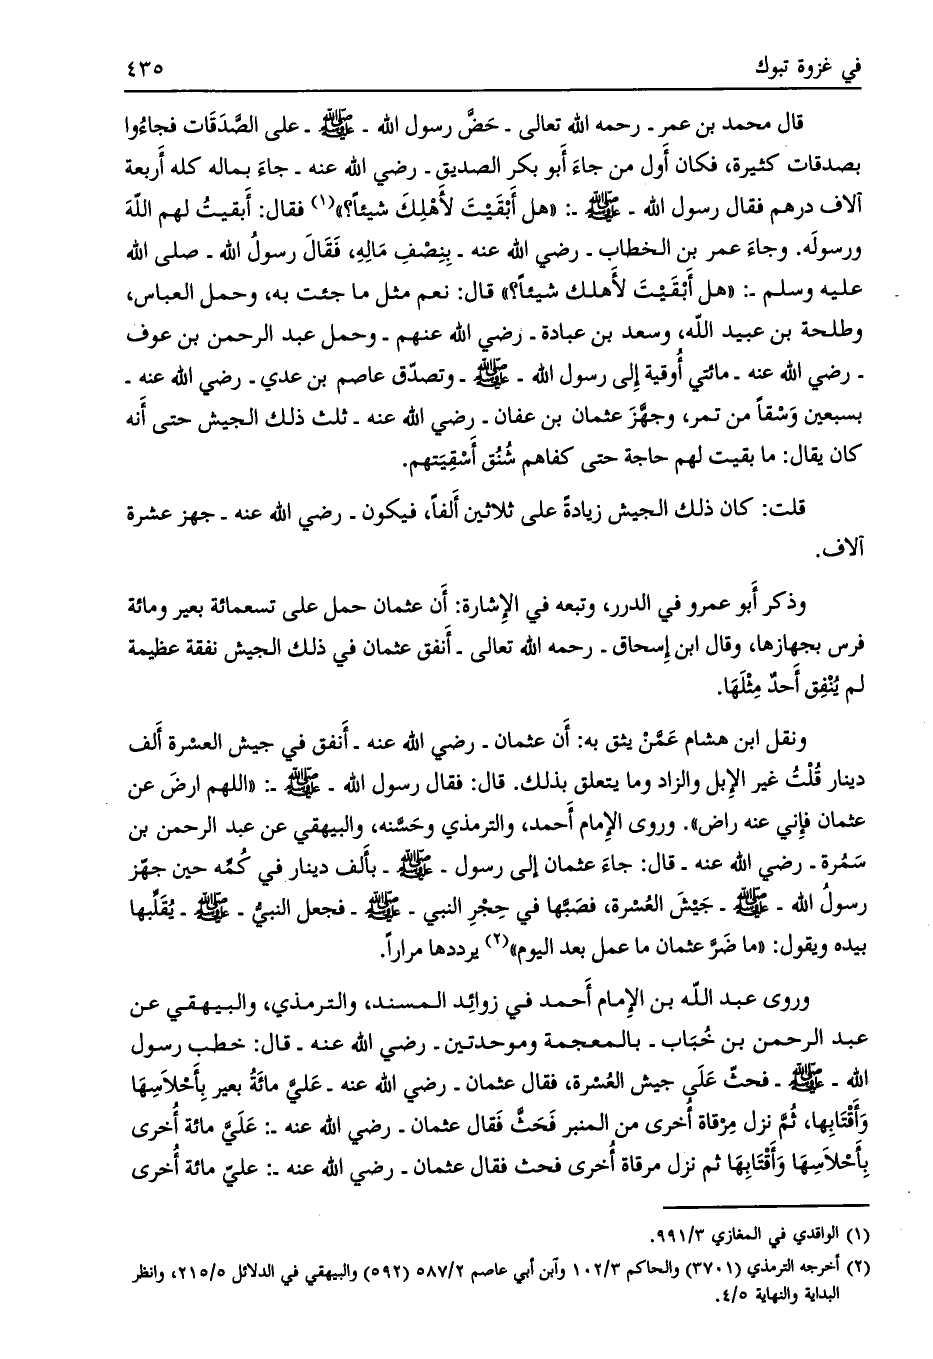 في غزوة تبوك ٤٣٥
قال محمد بن عمر ـ رحمه الله تعالى ـ حَضَّ رسول الله ـ ﷺ ـ على الصَّدَقَات فجاءُوا
بصدقات كثيرة، فكان أول من جاءَ أبو بكر الصديق ـ رضي الله عنه ـ جاءَ بماله كله أربعة
آلاف درهم فقال رسول الله ـ ﷺ ـ: «هل أَبْقَيْتَ لأَهْلِكَ شيئاً؟»(١) فقال: أبقيتُ لهم اللّهَ
ورسولَه. وجاءَ عمر بن الخطاب ـ رضي الله عنه ـ بِنِصْفِ مَالِهِ، فَقَالَ رسولُ الله ـ صلى الله
عليه وسلم ـ: «هل أَبْقَيْتَ لأَهلك شيئاً؟» قال: نعم مثل ما جئت به، وحمل العباس،
وطلحة بن عبيد اللّه، وسعد بن عبادة ـ رضي الله عنهم ـ وحمل عبد الرحمن بن عوف
ـ رضي الله عنه ـ مائتي أُوقية إلى رسول الله ـ ﷺ ـ وتصدّق عاصم بن عدي ـ رضي الله عنه ـ
بسبعين وَسْقاً من تمر، وجهَّزَ عثمان بن عفان ـ رضي الله عنه ـ ثلث ذلك الجيش حتى أنه
كان يقال: ما بقيت لهم حاجة حتى كفاهم شُنُق أَسْقِيَتهم.
قلت: كان ذلك الجيش زيادةً على ثلاثين أَلفاً، فيكون ـ رضي الله عنه ـ جهز عشرة
آلاف.
وذكر أَبو عمرو في الدرر، وتبعه في الإِشارة: أَن عثمان حمل على تسعمائة بعير ومائة
فرس بجهازها، وقال ابن إِسحاق ـ رحمه الله تعالى ـ أَنفق عثمان في ذلك الجيش نفقة عظيمة
لم يُنْفِق أَحدٌ مِثْلَهَا.
ونقل ابن هشام عَمَّنْ يثق به: أَن عثمان ـ رضي الله عنه ـ أَنفق في جيش العسْرة أَلف
دينار قُلْتُ غير الإِبل والزاد وما يتعلق بذلك. قال: فقال رسول الله ـ ﷺ ـ: «اللهم ارضَ عن
عثمان فإِني عنه راض». وروى الإمام أَحمد، والترمذي وحَسَّنه، والبيهقي عن عبد الرحمن بن
سَمُرة ـ رضي الله عنه ـ قال: جاءَ عثمان إلى رسول ـ ﷺ ـ بأَلف دينار في كُمِّه حين جهّز
رسولُ الله ـ ﷺ ـ جَيْشَ العُسْرة، فصَبَّها في حِجْرِ النبي ـ ﷺ ـ فجعل النبيُّ ـ ﷺ ـ يُقَلِّبها
بيده ويقول: «ما ضَرَّ عثمان ما عمل بعد اليوم»(٢) يرددها مراراً.
وروى عبد اللّه بن الإِمام أَحمد في زوائد المسند، والترمذي، والبيهقي عن
عبد الرحمن بن خُبَاب ـ بالمعجمة وموحدتين ـ رضي الله عنه ـ قال: خطب رسول
الله ـ ﷺ ـ فحثّ عَلَى جيش العُسْرة، فقال عثمان ـ رضي الله عنه ـ عَليَّ مائَةُ بعير بِأَحْلاَسِهَا
وَأَقْتَابِها، ثُمَّ نزل مِرْقاة أُخرى من المنبر فَحَثَّ فَقال عثمان ـ رضي الله عنه ـ: عَلَيَّ مائة أُخرى
بِأَحْلاَسِهَا وَأَقْتَابِهَا ثم نزل مرقاة أُخرى فحث فقال عثمان ـ رضي الله عنه ـ: عليّ مائة أُخرى
(١) الواقدي في المغازي ٩٩١/٣.
(٢) أخرجه الترمذي (٣٧٠١) والحاكم ١٠٢/٣ وآبن أبي عاصم ٥٨٧/٢ (٥٩٢) والبيهقي في الدلائل ٢١٥/٥، وانظر
البداية والنهاية ٤/٥.